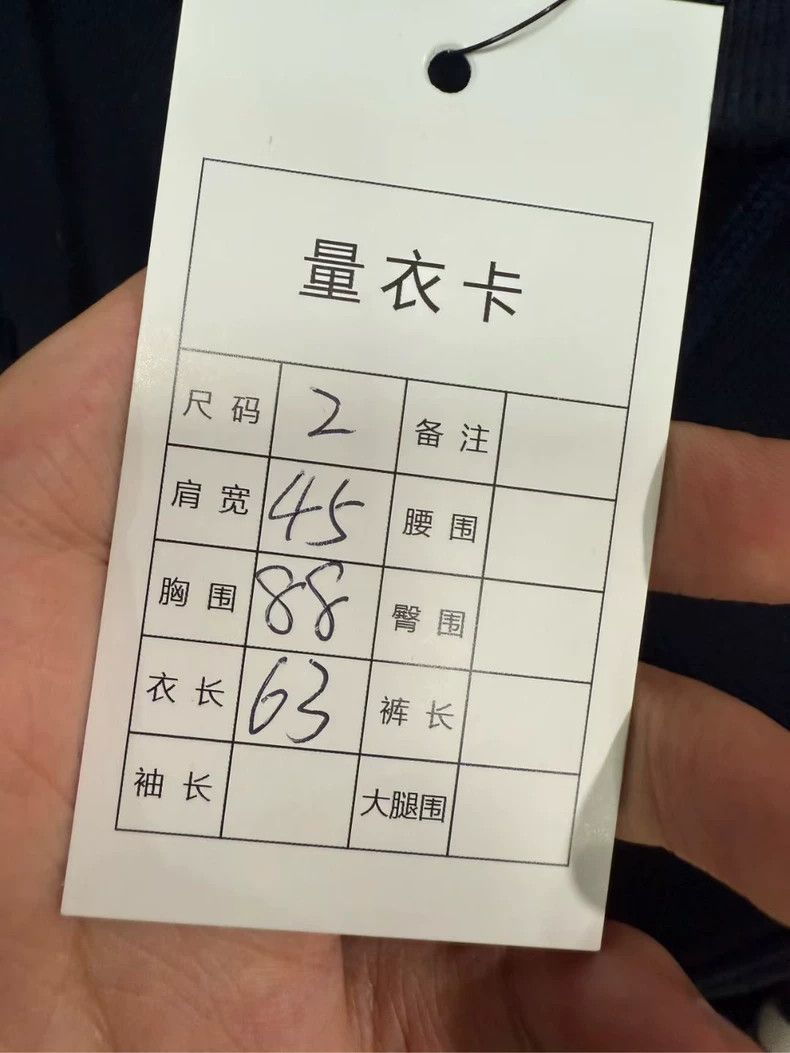 量衣卡
尺码 2 备注
肩宽 45 腰围
胸围 88 臀围
衣长 63 裤长
袖长 大腿围